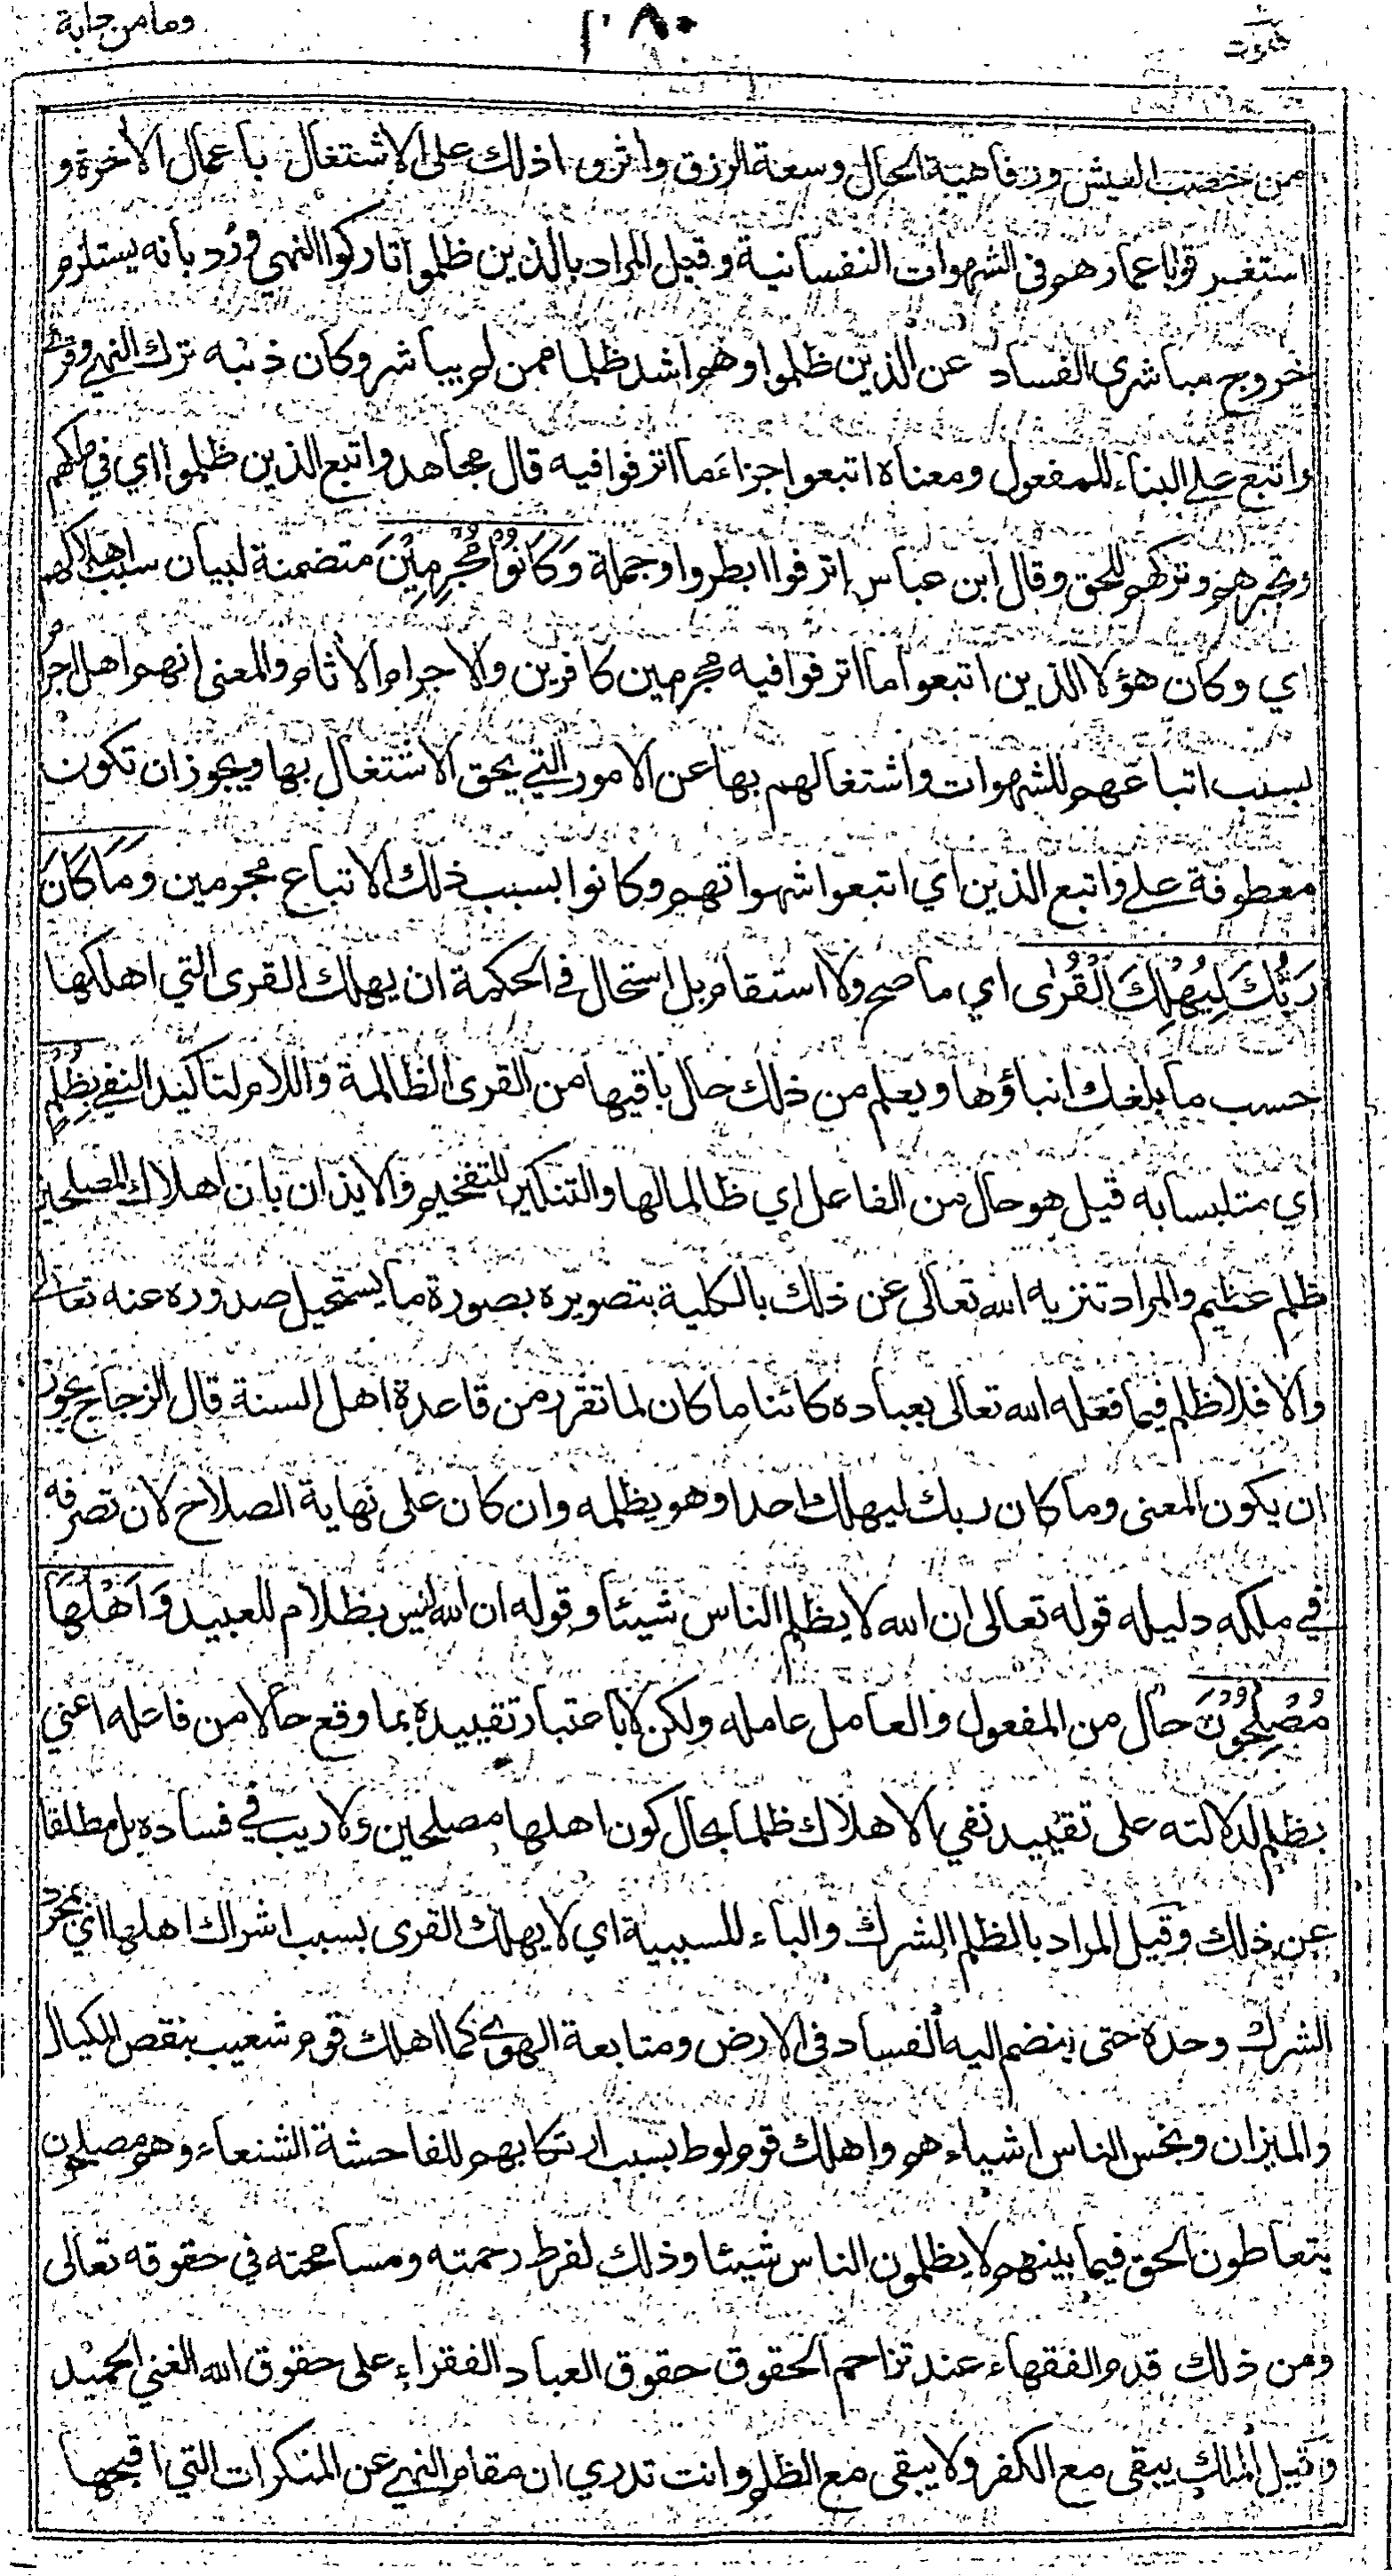 هود
١٠٨٠
وما من دابة
من خصب العيش ورفاهية الحال وسعة الرزق واثروا ذلك على الاشتغال باعمال الأخرة و
استغرقوا اعمارهم فى الشهوات النفسانية وقيل المراد بالذين ظلموا تاركوا النهي ورد بانه يستلزم
خروج مباشري الفساد عن الذين ظلموا وهم اشد ظلما ممن لم يباشر وكان ذنبه ترك النهي وقرئ
واتبع على البناء للمفعول ومعناه اتبعوا جزاء ما اترفوا فيه قال مجاهد واتبع الذين ظلموا اي في ملكهم
وتجبرهم وتركهم للحق وقال ابن عباس اترفوا ابطروا وجملة وَكَانُوْا مُجْرِمِيْنَ متضمنة لبيان سبب اهلاكهم
اي وكان هؤلا الذين اتبعوا ما اترفوا فيه مجرمين كافرين والاجرام الاثام والمعنى انهم اهل اجرام
بسبب اتباعهم للشهوات واشتغالهم بها عن الامور التي يحق الاشتغال بها ويجوز ان تكون
معطوفة على واتبع الذين اي اتبعوا شهواتهم وكانوا بسبب ذلك الاتباع مجرمين وَمَا كَانَ
رَبُّكَ لِيُهْلِكَ الْقُرٰى اي ما صح ولا استقام بل استحال في الحكمة ان يهلك القرى التي اهلكها
حسب ما بلغك انباؤها ويعلم من ذلك حال باقيها من القرى الظالمة واللام لتاكيد النفي بِظُلْمٍ
اي متلبسا به قيل هو حال من الفاعل اي ظالما لها والتنكير للتفخيم والايذان بان اهلاك المصلحين
ظلم عظيم والمراد تنزيه الله تعالى عن ذلك بالكلية بتصويره بصورة ما يستحيل صدوره عنه تعالى
والا فلا ظلم فيما فعله الله تعالى بعباده كائنا ما كان لما تقرر من قاعدة اهل السنة قال الزجاج يجوز
ان يكون المعنى وما كان ربك ليهلك احدا وهو يظلمه وان كان على نهاية الصلاح لان تصرفه
في ملكه دليله قوله تعالى ان الله لا يظلم الناس شيئا وقوله ان الله ليس بظلام للعبيد وَاَهْلُهَا
مُصْلِحُوْنَ حال من المفعول والعامل عامله ولكن لا باعتبار تقييده بما وقع حالا من فاعله اعني
بظلم لدلالته على تقييد نفي الاهلاك ظلما بحال كون اهلها مصلحين ولا ريب في فساده بل مطلقا
عن ذلك وقيل المراد بالظلم الشرك والباء للسببية اي لا يهلك القرى بسبب اشراك اهلها اي بمجرد
الشرك وحده حتى ينضم اليه الفساد فى الارض ومتابعة الهوى كما اهلك قوم شعيب بنقص المكيال
والميزان وبخس الناس اشياءهم واهلك قوم لوط بسبب ارتكابهم للفاحشة الشنعاء وهم مصلحون
يتعاطون الحق فيما بينهم لا يظلمون الناس شيئا وذلك لفرط رحمته ومسامحته في حقوقه تعالى
ومن ذلك قدم الفقهاء عند تزاحم الحقوق حقوق العباد الفقراء على حقوق الله الغني الحميد
وقيل الملك يبقى مع الكفر ولا يبقى مع الظلم وانت تدري ان مقام النهي عن المنكرات التي اقبحها